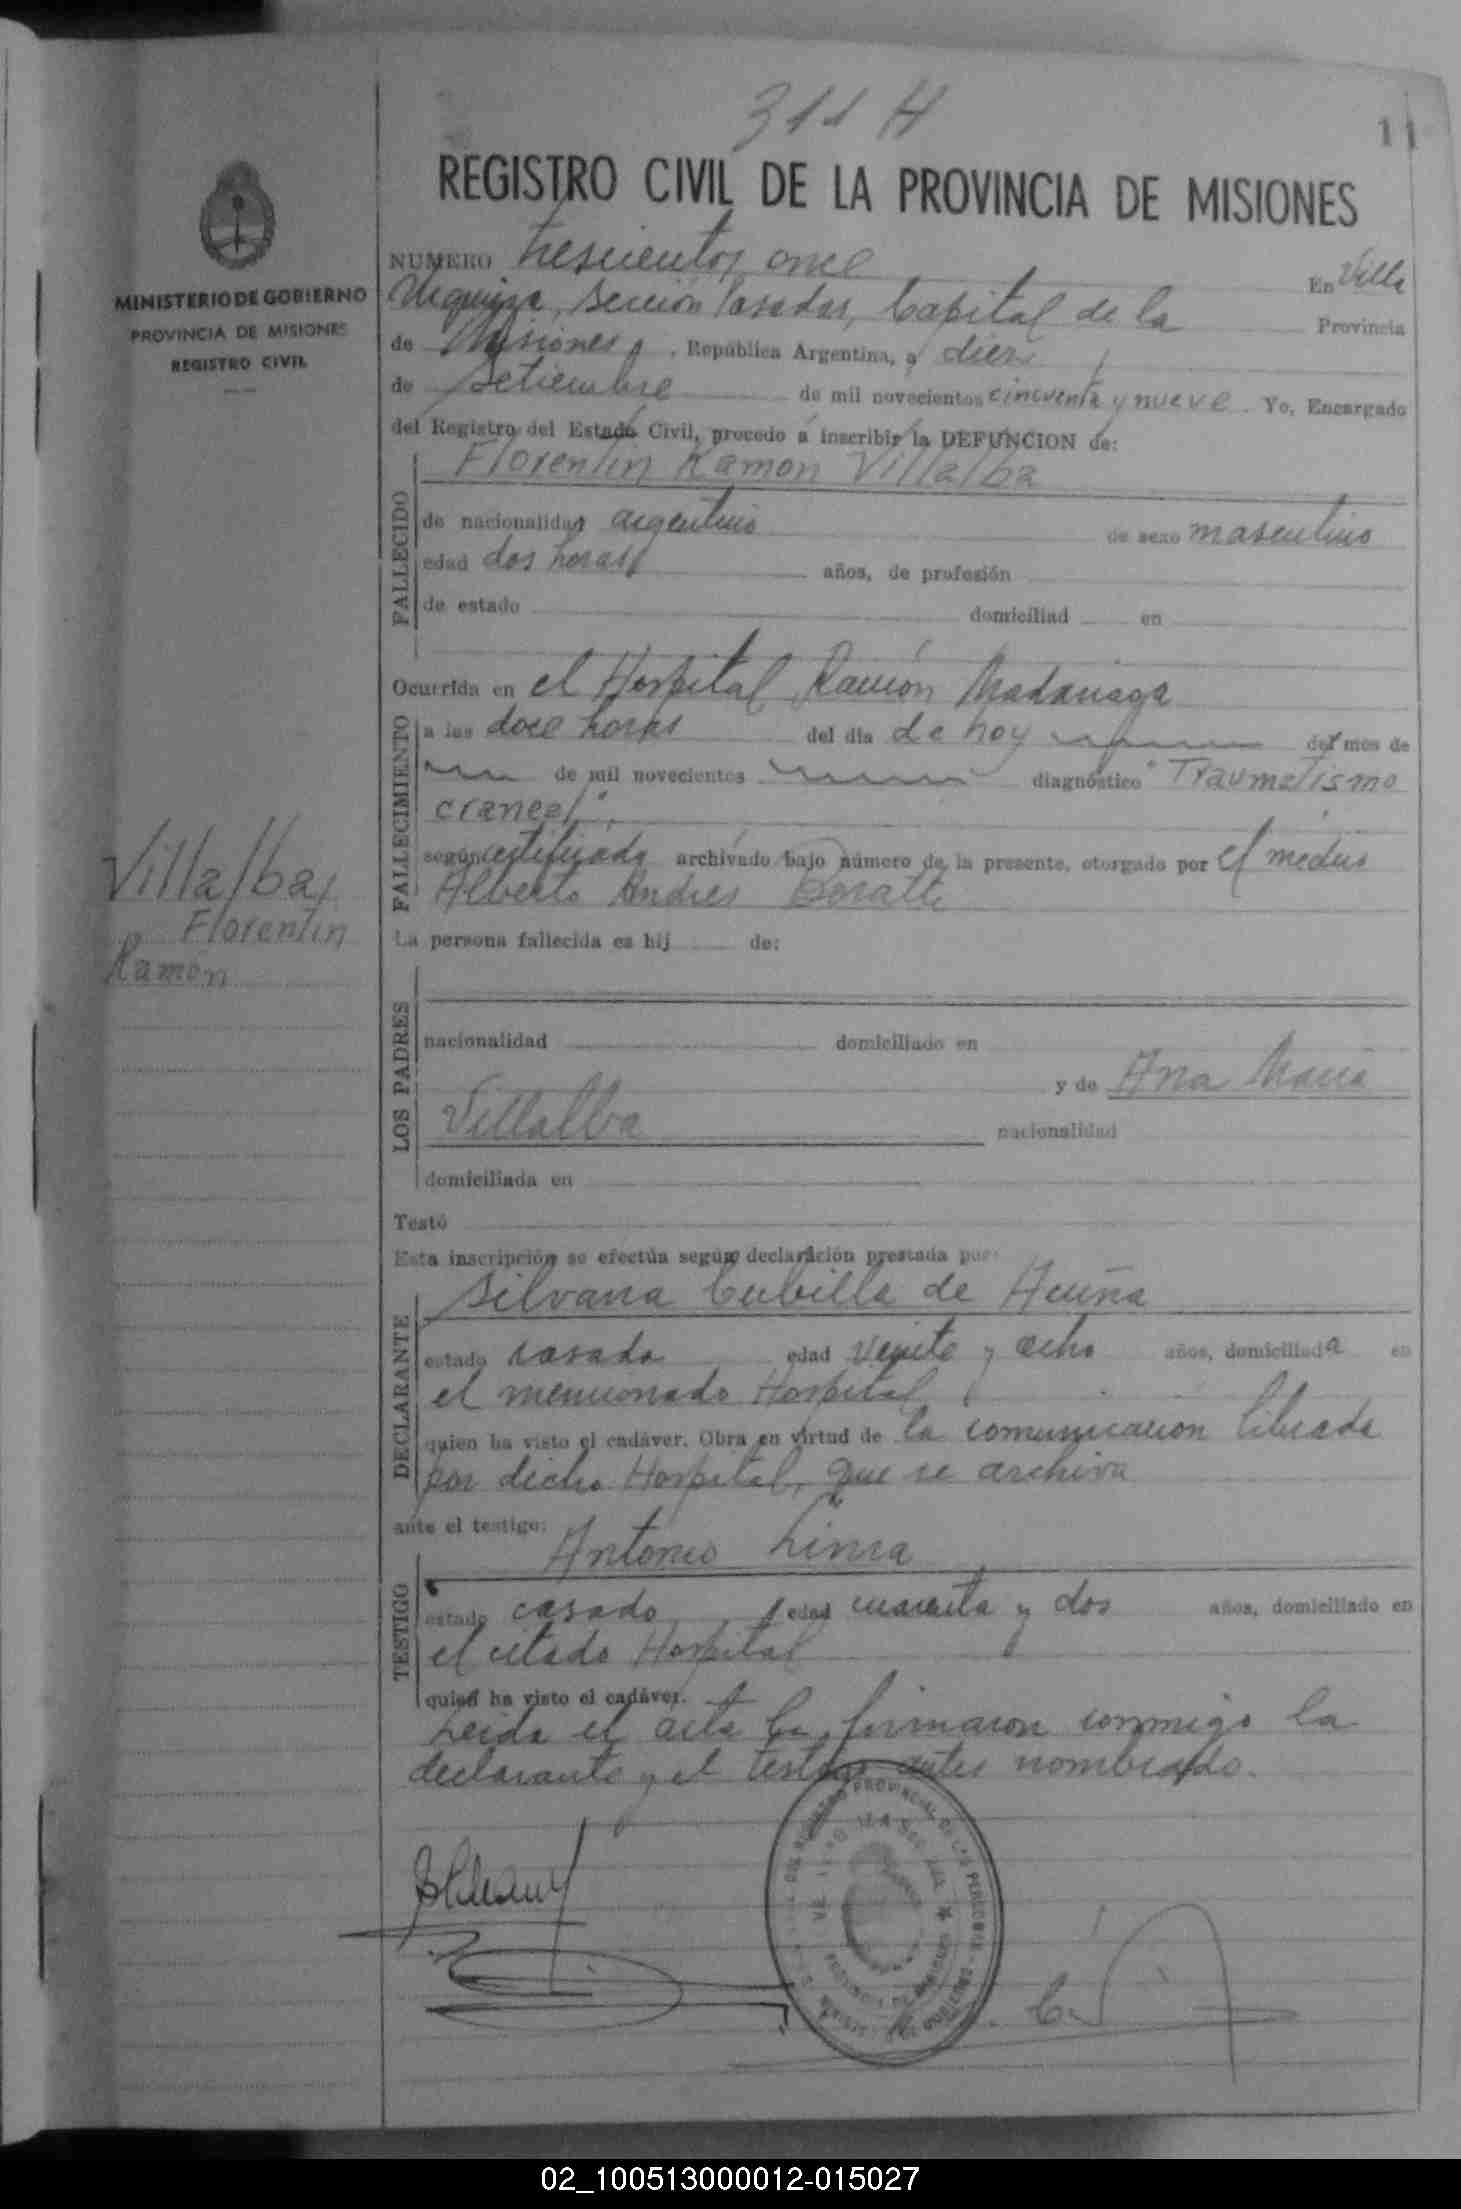 311 H
11
REGISTRO CIVIL DE LA PROVINCIA DE MISIONES
MINISTERIO DE GOBIERNO
PROVINCIA DE MISIONES
REGISTRO CIVIL
NUMERO trescientos once En Villa
Urquiza, Sección Posadas, Capital de la Provincia
de Misiones, República Argentina, a diez
de Setiembre de mil novecientos cincuenta y nueve. Yo, Encargado
del Registro del Estado Civil, procedo a inscribir la DEFUNCION de:
Florentin Ramon Villalba
FALLECIDO
de nacionalidad argentino de sexo masculino
edad dos horas años, de profesión
de estado domiciliad en
Ocurrida en el Hospital Ramón Madariaga
FALLECIMIENTO
a las doce horas del día de hoy del mes de
de mil novecientos diagnóstico "Traumatismo
craneal".
según certificado archivado bajo número de la presente, otorgado por el médico
Alberto Andres
La persona fallecida es hij de:
Villalba,
Florentin
Ramón
LOS PADRES
nacionalidad domiciliado en
y de Ana María
Villalba nacionalidad
domiciliada en
Testó
Esta inscripción se efectúa según declaración prestada por:
Silvana Cubilla de Acuña
DECLARANTE
estado casada edad veinte y ocho años, domiciliada en
el mencionado Hospital
quien ha visto el cadáver. Obra en virtud de la comunicación librada
por dicho Hospital, que se archiva
ante el testigo:
Antonio Lima
TESTIGO
estado casado edad cuarenta y dos años, domiciliado en
el citado Hospital
quien ha visto el cadáver.
Leida el acta la firmaron conmigo la
declarante y el testigo antes nombrado.
02_100513000012-015027